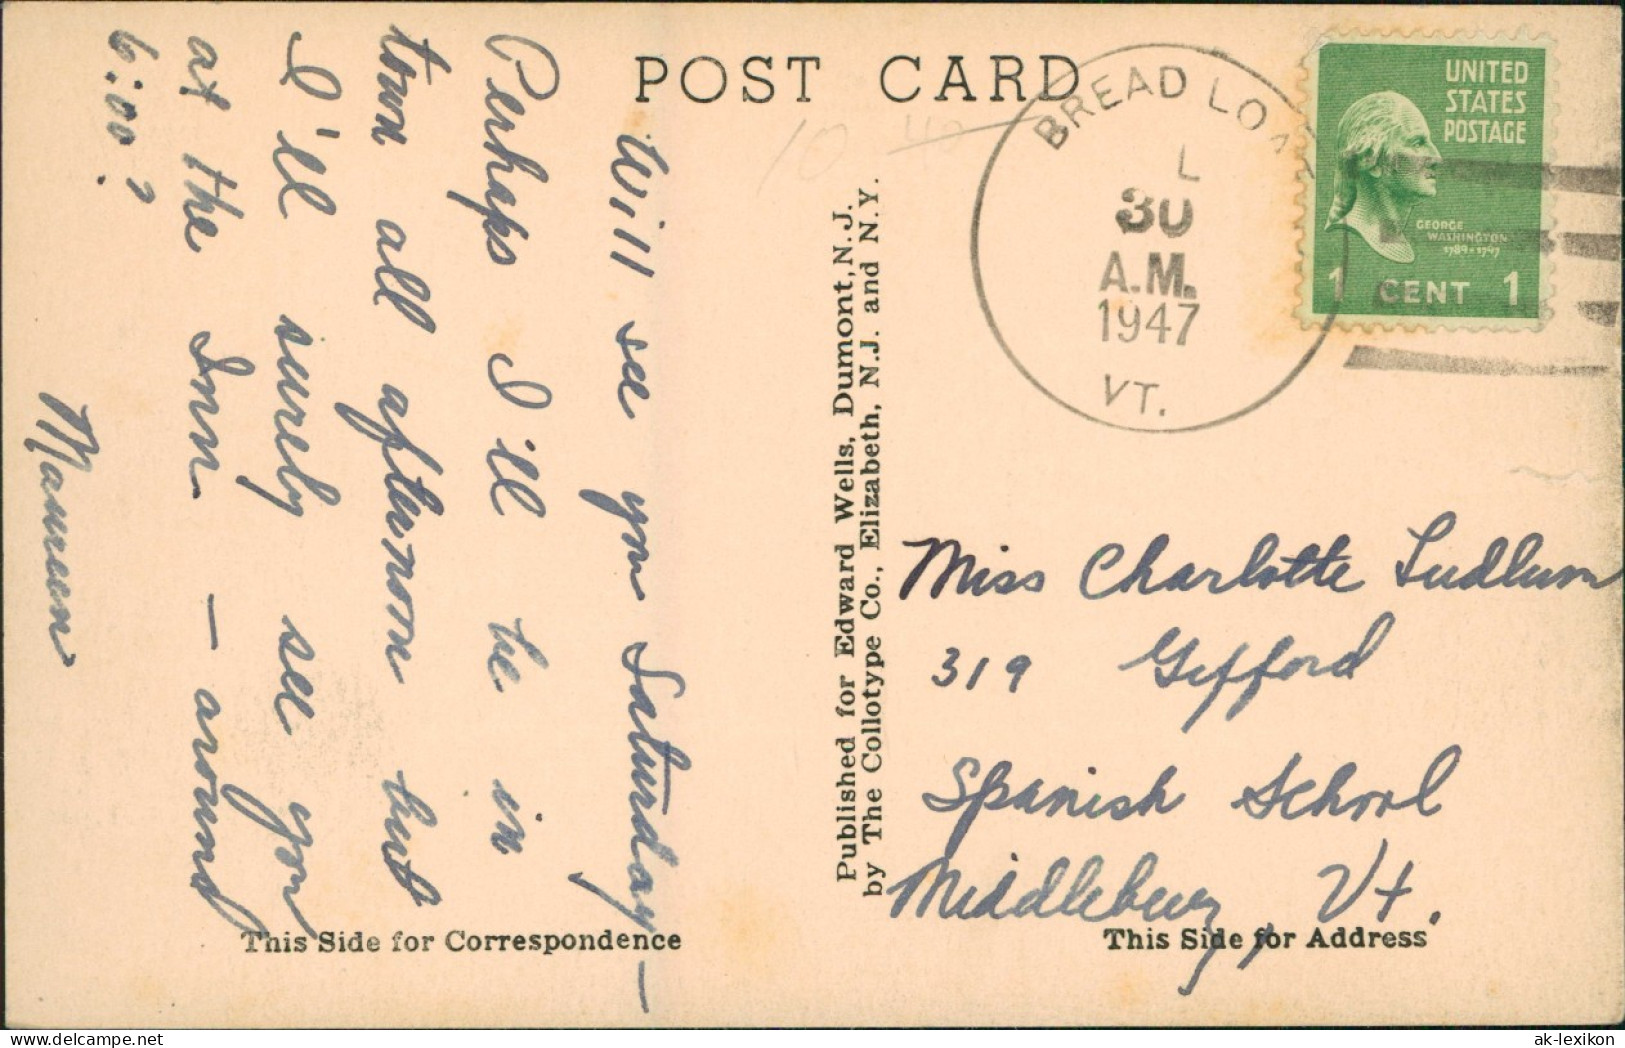 POST CARD
10 40
Will see you Saturday—
Perhaps I'll be in
town all afternoon but
I'll surely see you
at the Inn — around
6:00?
Maureen
This Side for Correspondence
Published for Edward Wells, Dumont, N. J.
by The Collotype Co., Elizabeth, N.J. and N.Y.
BREAD LOAF
L
30
A.M.
1947
VT.
UNITED
STATES
POSTAGE
GEORGE
WASHINGTON
1789-1797
1 CENT 1
Miss Charlotte Ludlum
319 Gifford
Spanish School
Middlebury, Vt.
This Side for Address
delcampe.net
ak-lexikon